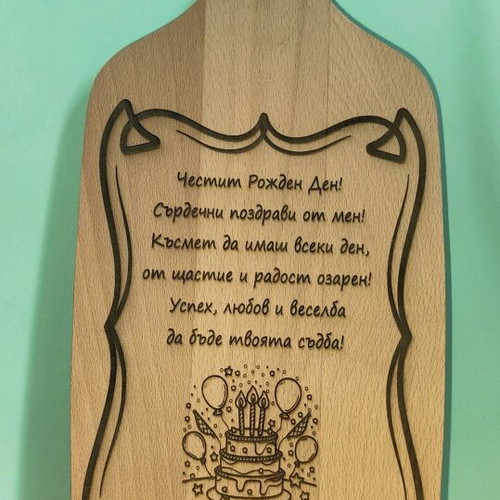 Честит Рожден Ден!
Сърдечни поздрави от мен!
Късмет да имаш всеки ден,
от щастие и радост озарен!
Успех, любов и веселба
да бъде твоята съдба!